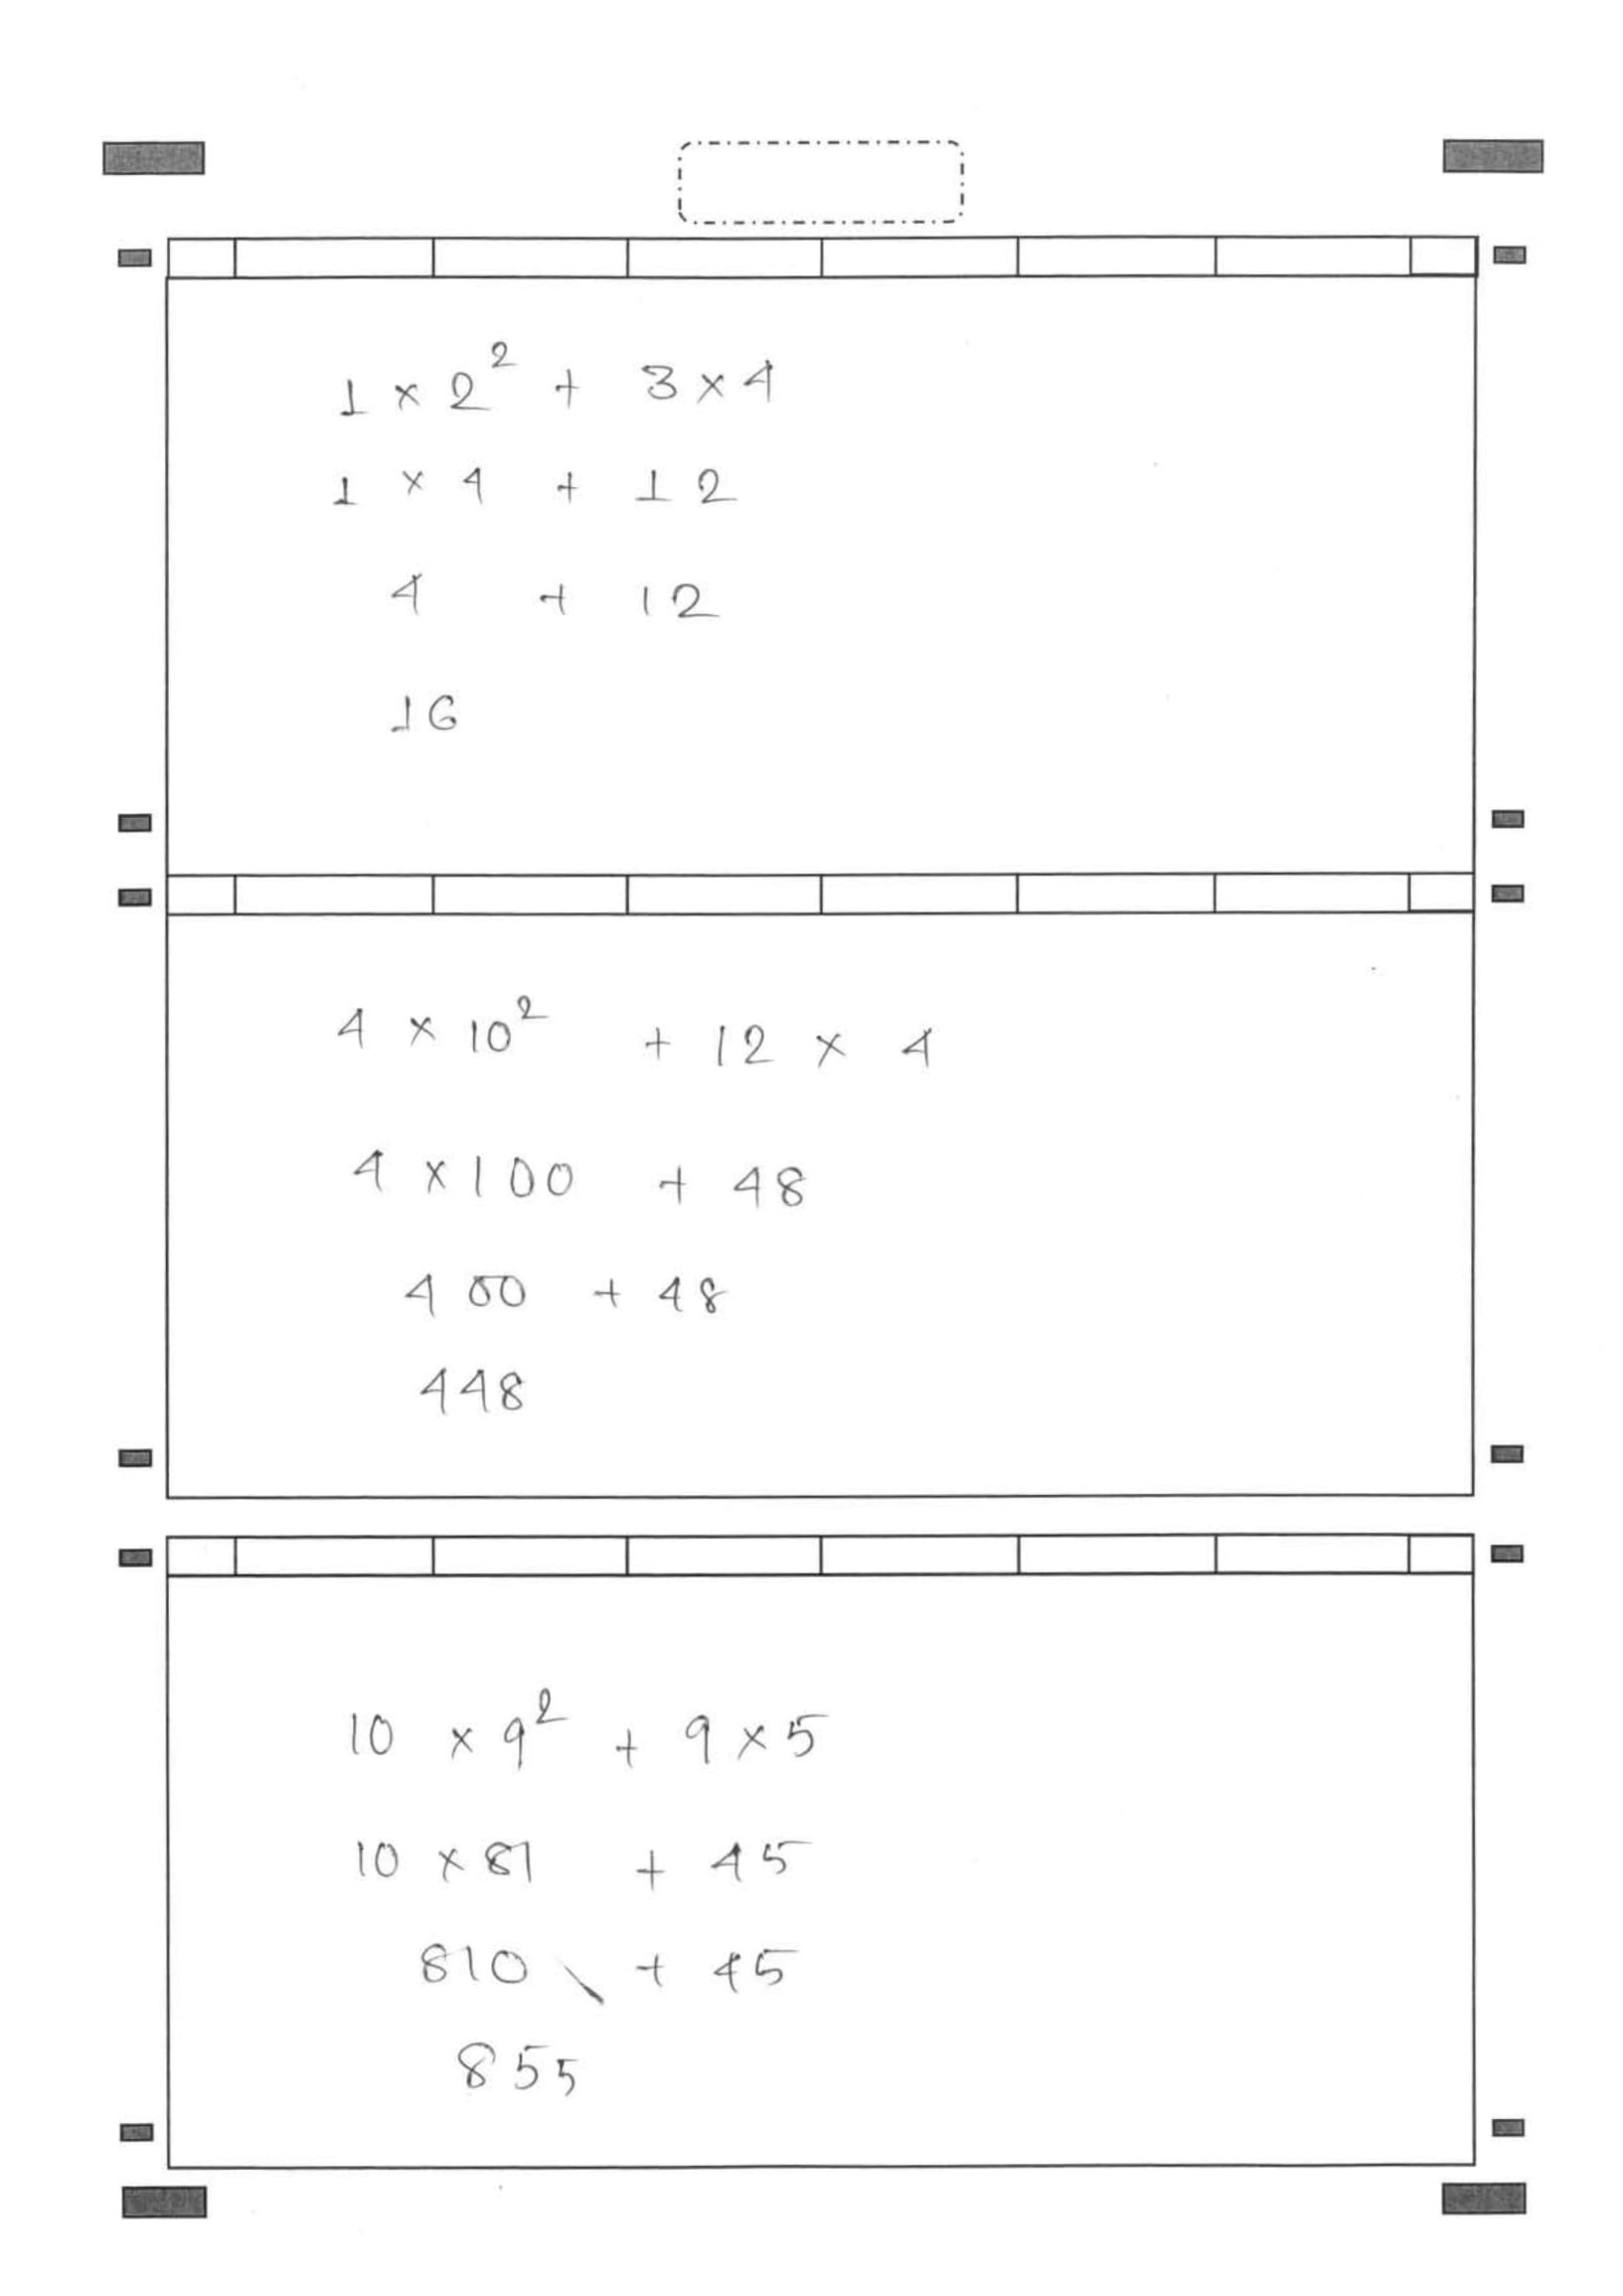 1 × 2² + 3 × 4
1 × 4 + 12
4 + 12
16
4 × 10² + 12 × 4
4 × 100 + 48
400 + 48
448
10 × 9² + 9 × 5
10 × 81 + 45
810 \ + 45
855